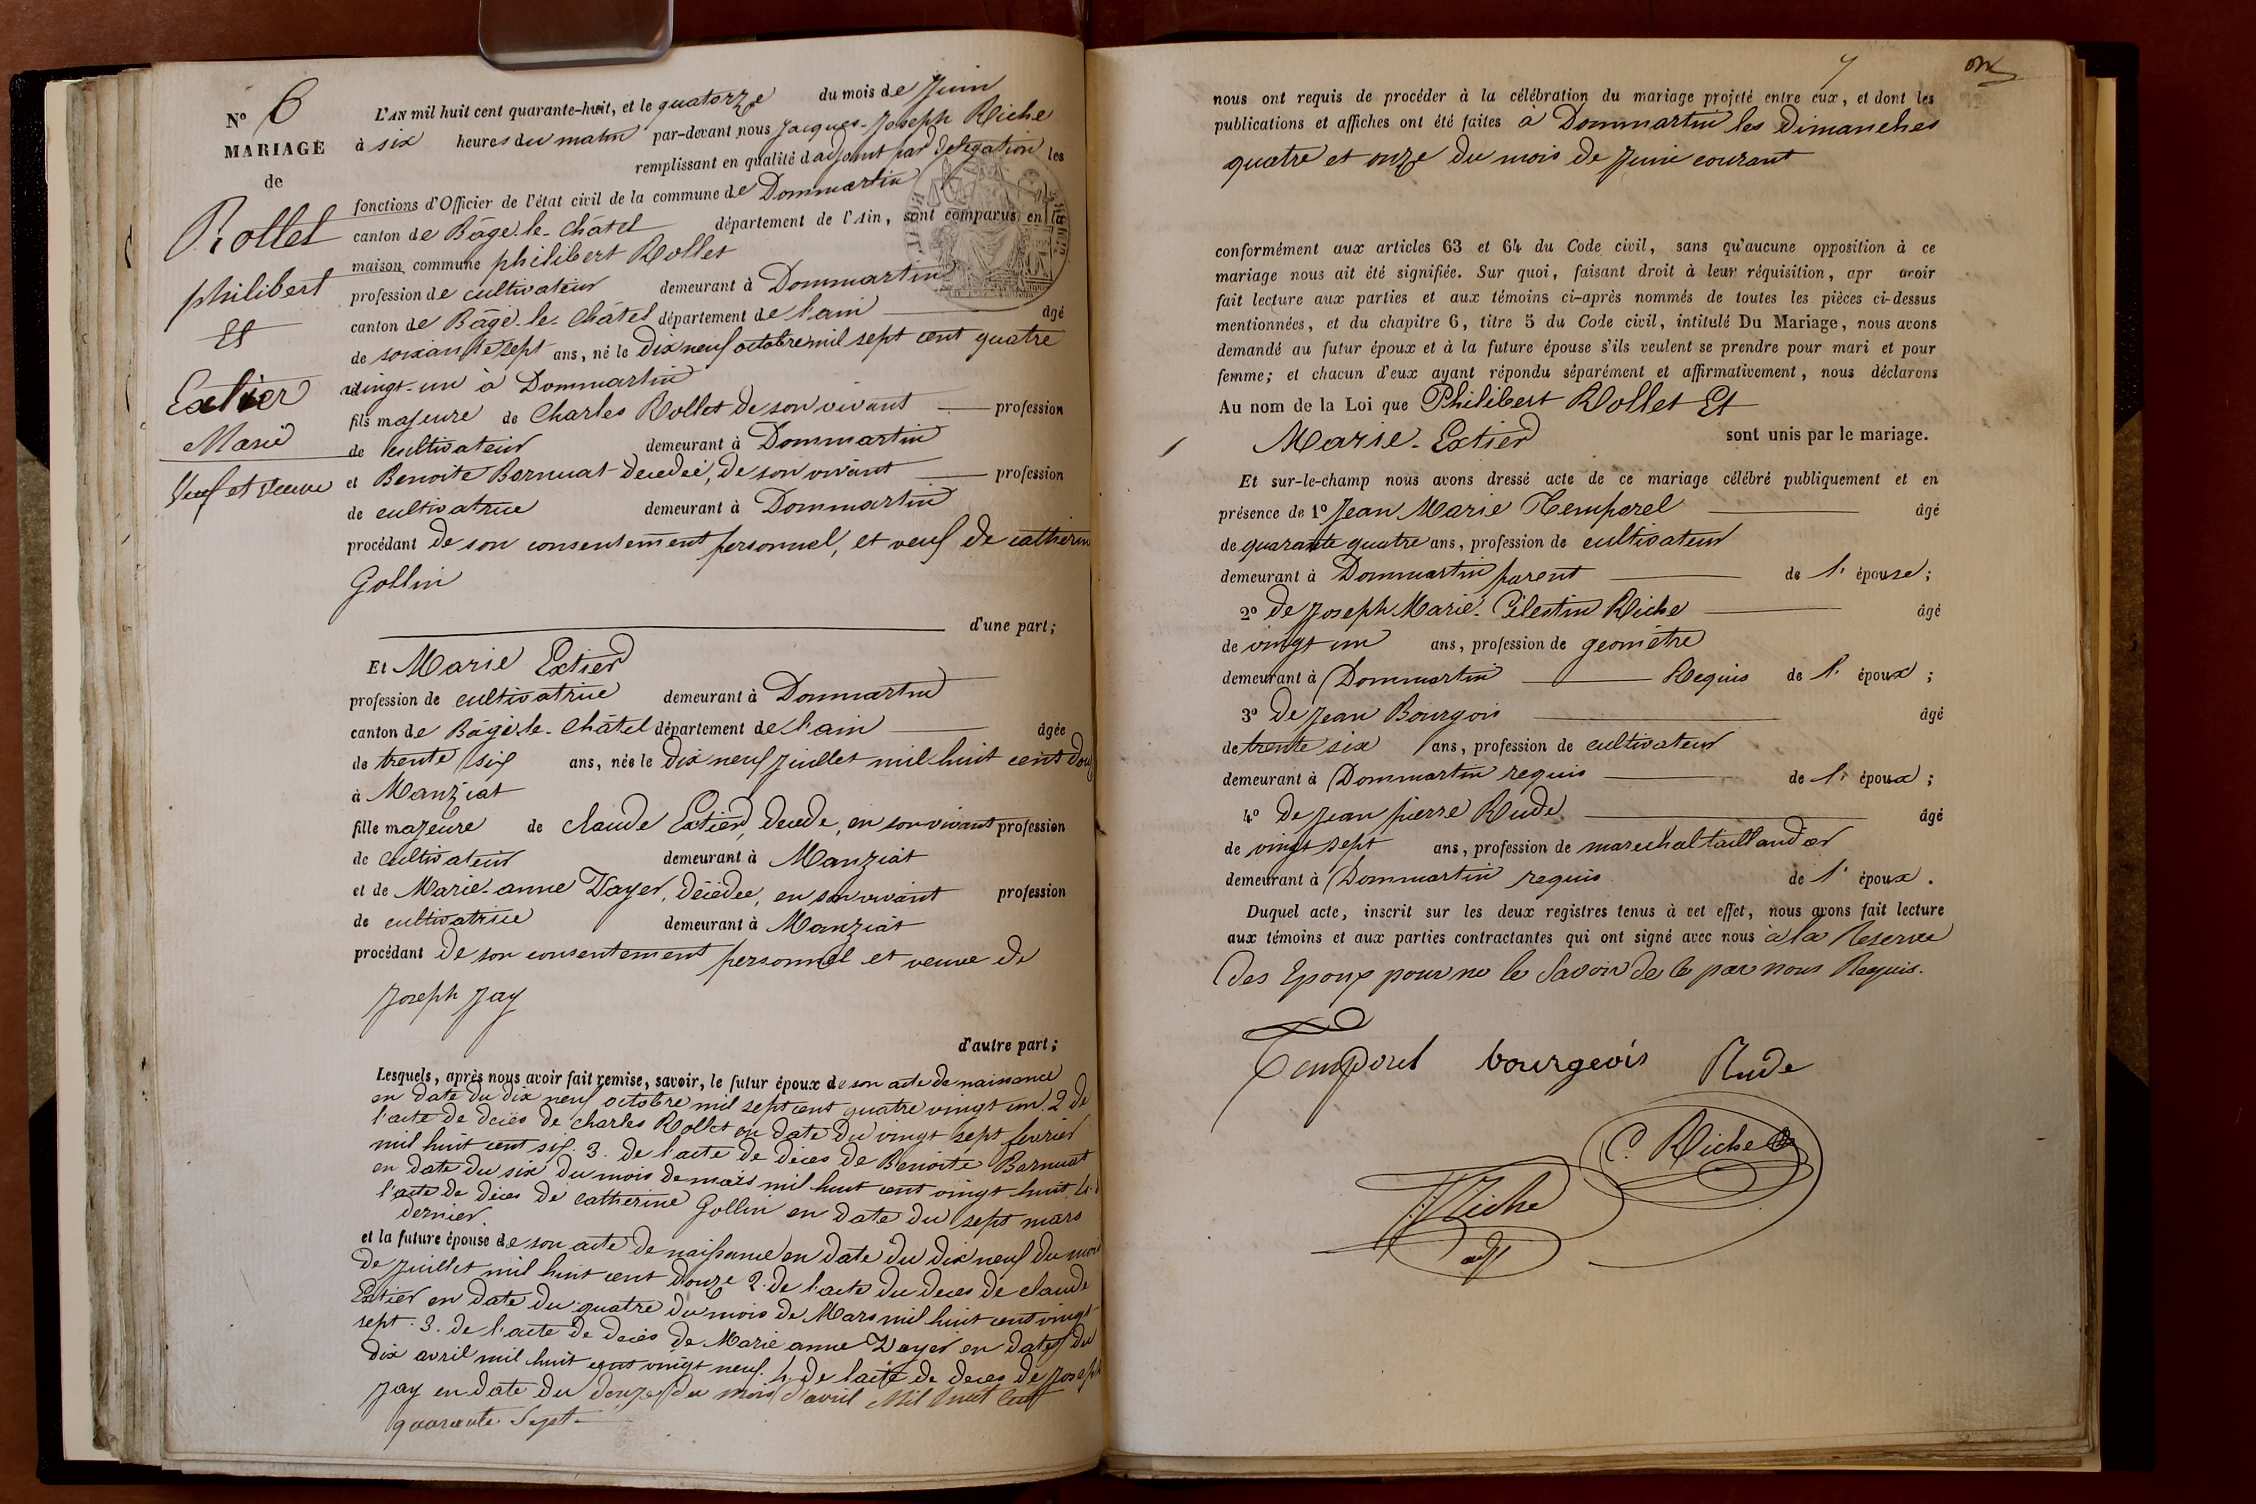 N° 6
MARIAGE
de
Rollet
philibert
Et
Extier
Marie
Veuf et Veuve
L'AN mil huit cent quarante-huit, et le quatorze du mois de Juin
à six heures du matin par-devant nous Jacques-Joseph Riche
remplissant en qualité d'adjoint par délégation les
fonctions d'Officier de l'état civil de la commune de Dommartin
canton de Bâgé-le-Châtel département de l'Ain, sont comparus en la
maison commune philibert Rollet
profession de cultivateur demeurant à Dommartin
canton de Bâgé-le-Châtel département de l'ain âgé
de soixante sept ans, né le Dix neuf octobre mil sept cent quatre
vingt-un à Dommartin
fils majeure de Charles Rollet de son vivant profession
de cultivateur demeurant à Dommartin
et Benoite Bernuat decedée, de son vivant profession
de cultivatrice demeurant à Dommartin
procédant de son consentement personnel, et veuf de catherine
Gollin
d'une part;
Et Marie Extier
profession de cultivatrice demeurant à Dommartin
canton de Bâgé-le-Châtel département de l'ain âgée
de trente six ans, née le Dix neuf juillet mil huit cent douze
à Manziat
fille majeure de claude Extier, decede, en son vivant profession
de cultivateur demeurant à Manziat
et de Marie-anne Dayer, décédée, en son vivant profession
de cultivatrice demeurant à Manziat
procédant de son consentement personnel et veuve de
Joseph Jay
d'autre part;
Lesquels, après nous avoir fait remise, savoir, le futur époux de son acte de naissance
en date du dix neuf octobre mil sept cent quatre vingt un. 2 de
l'acte de décès de Charles Rollet en date du vingt sept fevrier
mil huit cent six. 3. de l'acte de décès de Benoite Bernuat
en date du six du mois de mars mil huit cent vingt huit. 4.
l'acte de décès de catherine Gollin en date du sept mars
dernier.
et la future épouse de son acte de naissance en date du dix neuf du mois
de juillet mil huit cent douze 2. de l'acte du deces de claude
Extier en date du quatre du mois de Mars mil huit cent vingt
sept. 3. de l'acte de decès de Marie anne Dayer en date du
dix avril mil huit cent vingt neuf. 4. de l'acte de deces de Joseph
Jay en date du douze du mois d'avril Mil huit Cent
quarante-Sept
7
nous ont requis de procéder à la célébration du mariage projeté entre eux, et dont les
publications et affiches ont été faites à Dommartin les Dimanches
quatre et onze du mois de Juin courant
conformément aux articles 63 et 64 du Code civil, sans qu'aucune opposition à ce
mariage nous ait été signifiée. Sur quoi, faisant droit à leur réquisition, apr avoir
fait lecture aux parties et aux témoins ci-après nommés de toutes les pièces ci-dessus
mentionnées, et du chapitre 6, titre 5 du Code civil, intitulé Du Mariage, nous avons
demandé au futur époux et à la future épouse s'ils veulent se prendre pour mari et pour
femme; et chacun d'eux ayant répondu séparément et affirmativement, nous déclarons
Au nom de la Loi que Philibert Rollet Et
Marie-Extier sont unis par le mariage.
Et sur-le-champ nous avons dressé acte de ce mariage célébré publiquement et en
présence de 1° Jean Marie Temporel âgé
de quarante quatre ans, profession de cultivateur
demeurant à Dommartin parent de l' épouse;
2° de Joseph Marie-Célestin Riche âgé
de vingt un ans, profession de geomètre
demeurant à Dommartin Requis de l' époux;
3° de Jean Bourgois âgé
de trente six ans, profession de cultivateur
demeurant à Dommartin requis de l' époux;
4° de Jean pierre Rude âgé
de vingt sept ans, profession de marechal taillandier
demeurant à Dommartin requis de l' époux.
Duquel acte, inscrit sur les deux registres tenus à cet effet, nous avons fait lecture
aux témoins et aux parties contractantes qui ont signé avec nous à la Reserve
des Epoux pour ne le Savoir de ce par nous Requis.
Temporel bourgeois Rude
C. Riche
J. Riche
adj